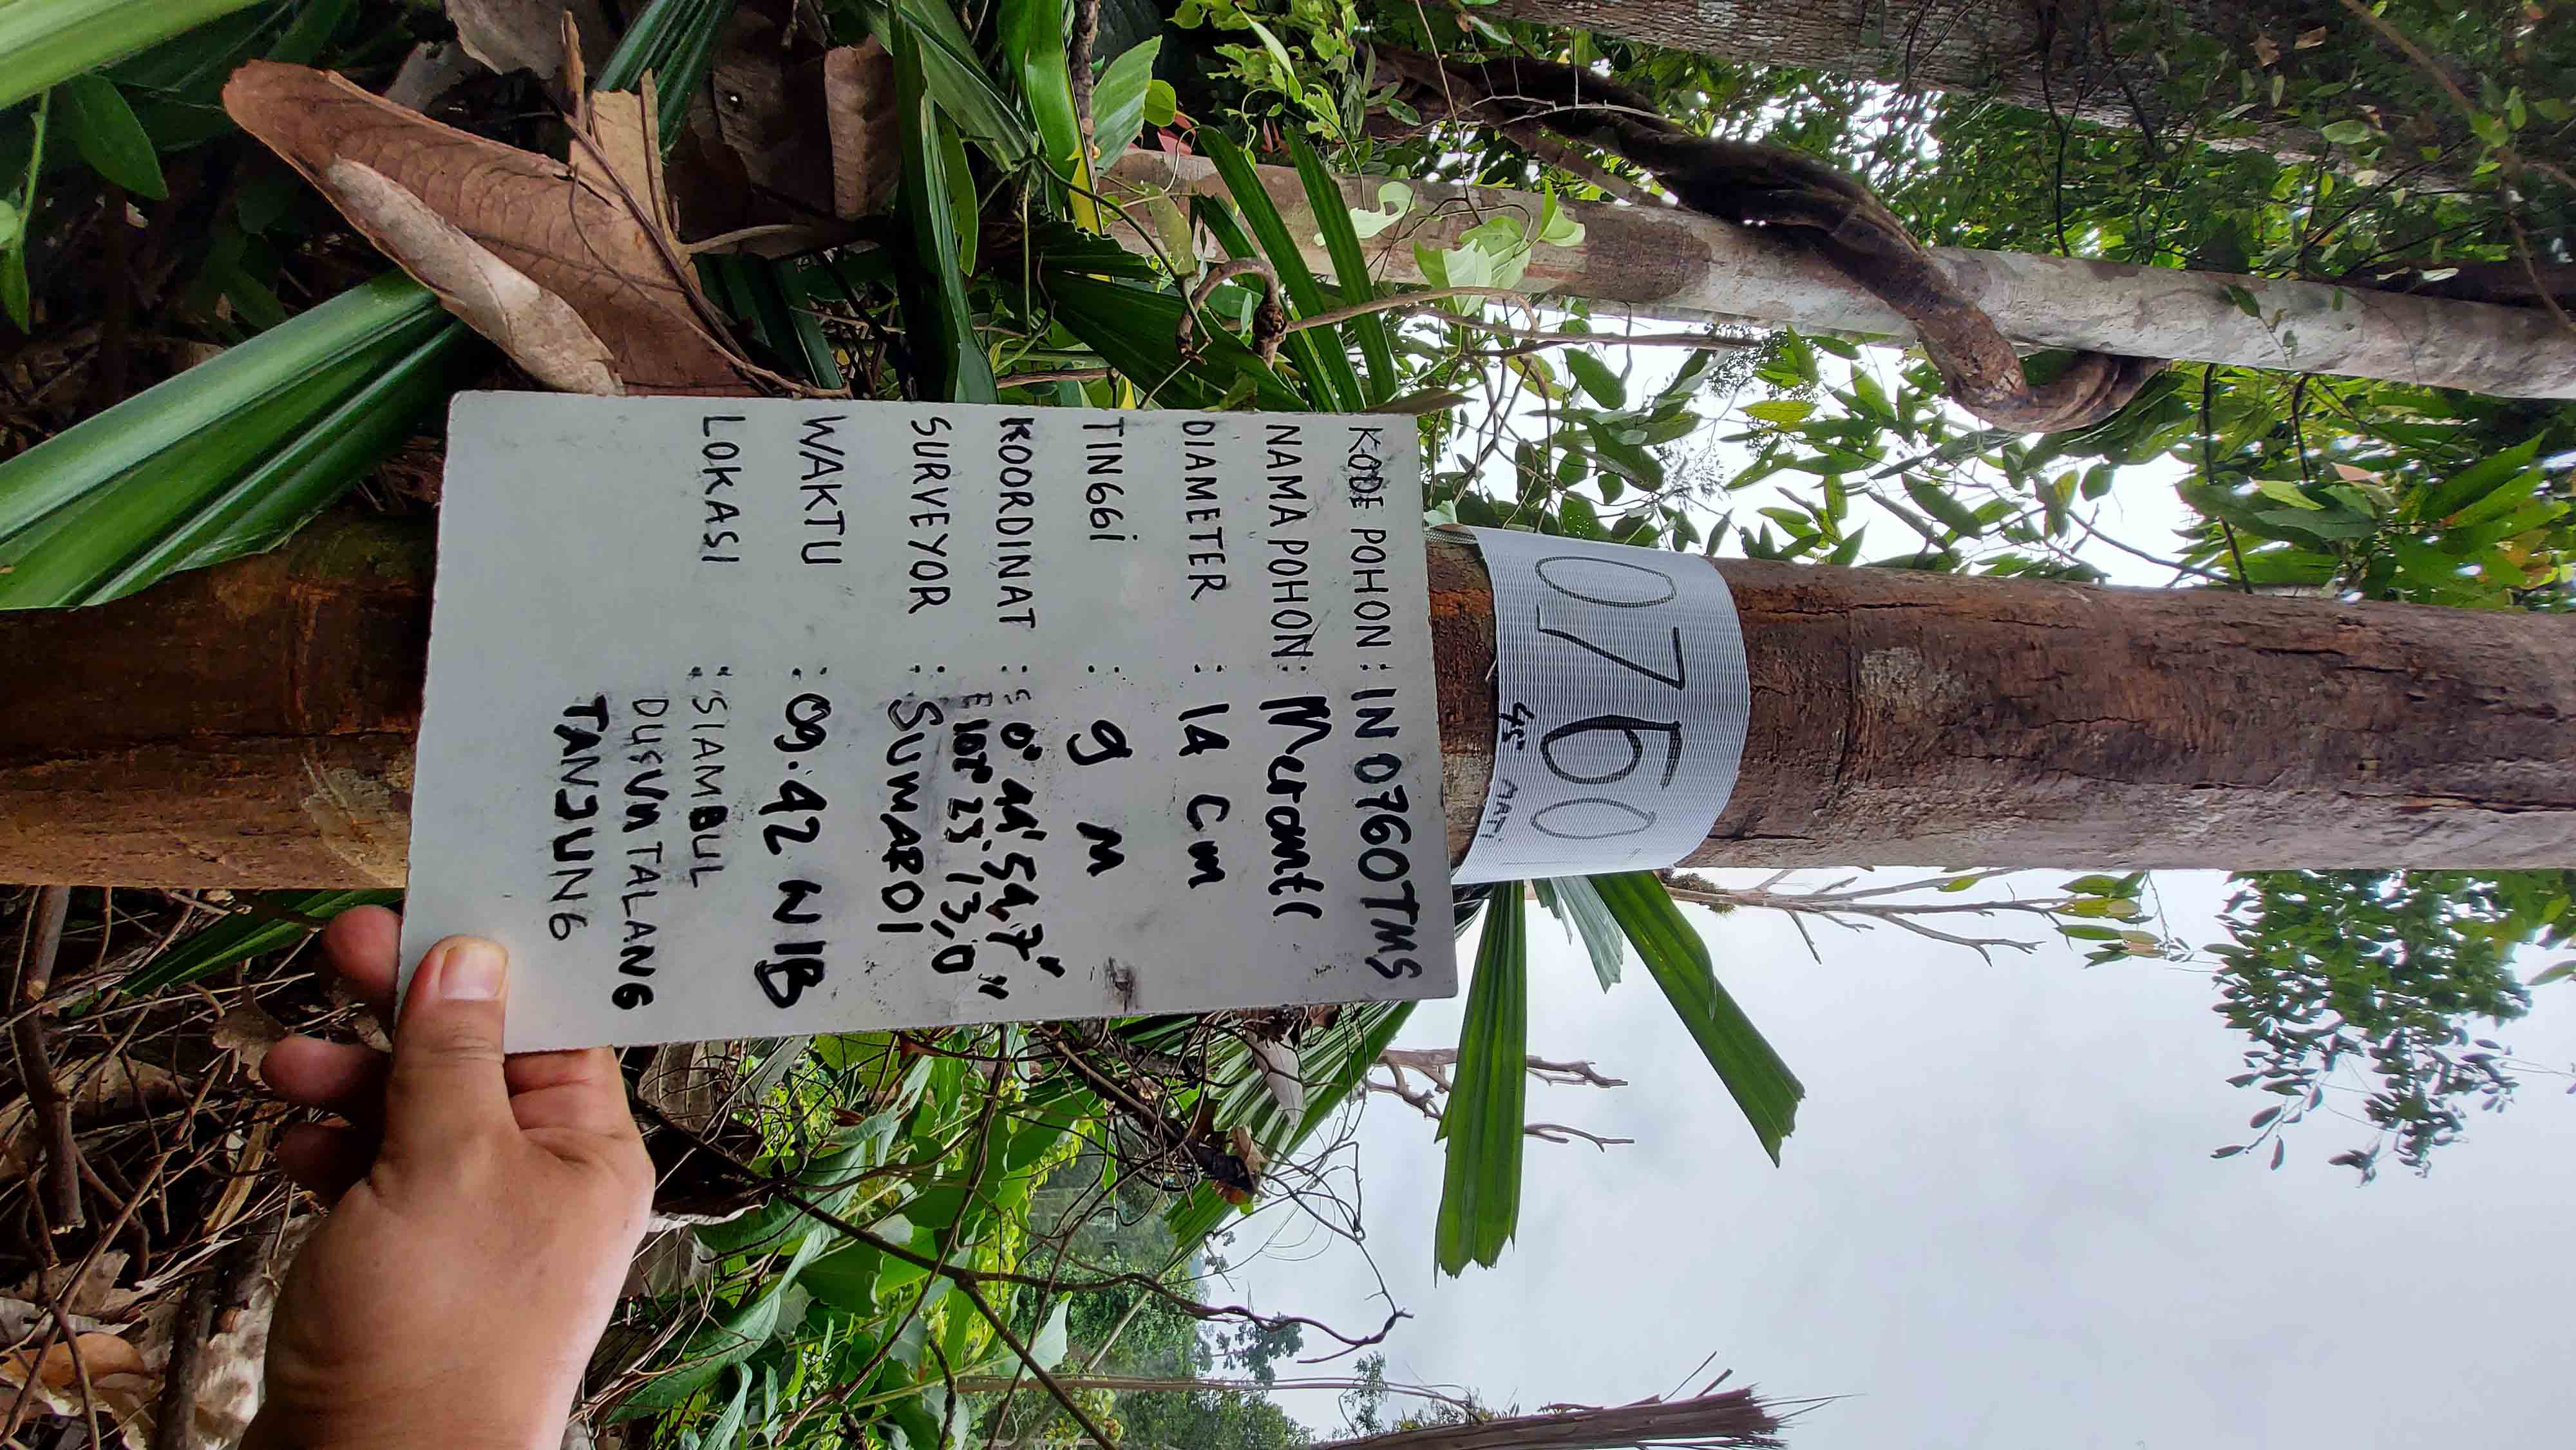 0760
45 MATI
KODE POHON : IN0760TMS
NAMA POHON : Meranti
DIAMETER : 14 cm
TINGGI : 9 m
KOORDINAT : S 0° 44' 54,7"
E 102° 23' 13,0"
SURVEYOR : SUWARDI
WAKTU : 09.42 WIB
LOKASI : SIAMBUL
DUSUN TALANG
TANJUNG